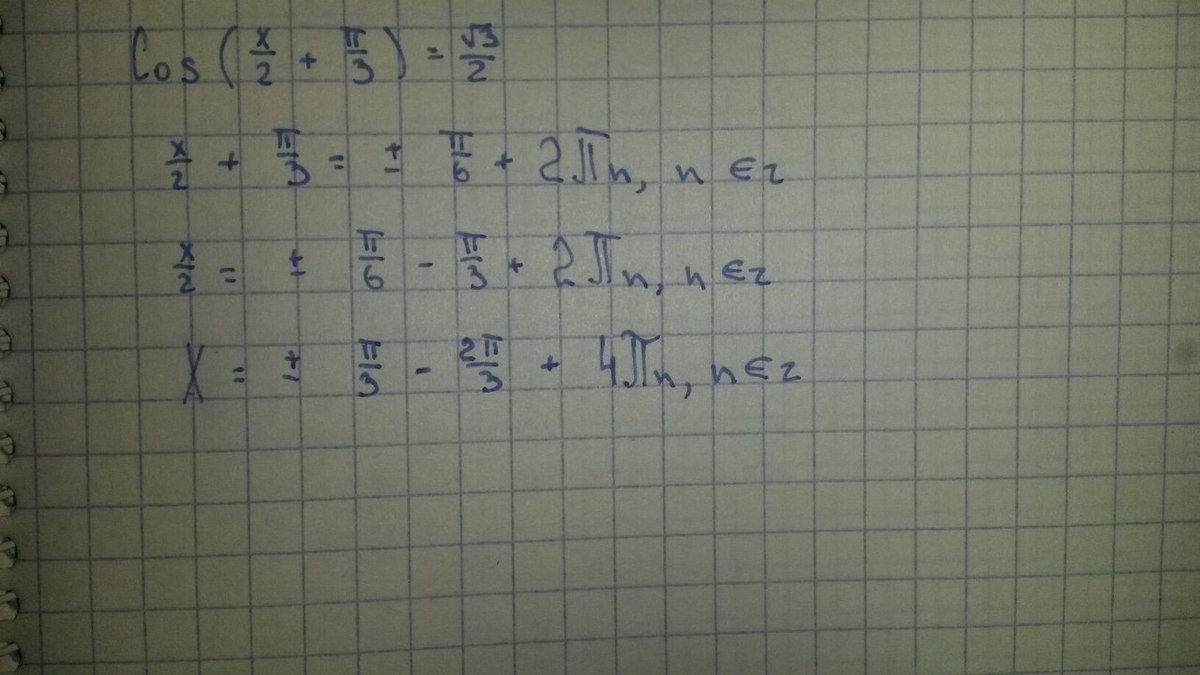 Cos (x/2 + π/3) = √3/2
x/2 + π/3 = ± π/6 + 2πn, n ∈ z
x/2 = ± π/6 - π/3 + 2πn, n ∈ z
X = ± π/3 - 2π/3 + 4πn, n ∈ z